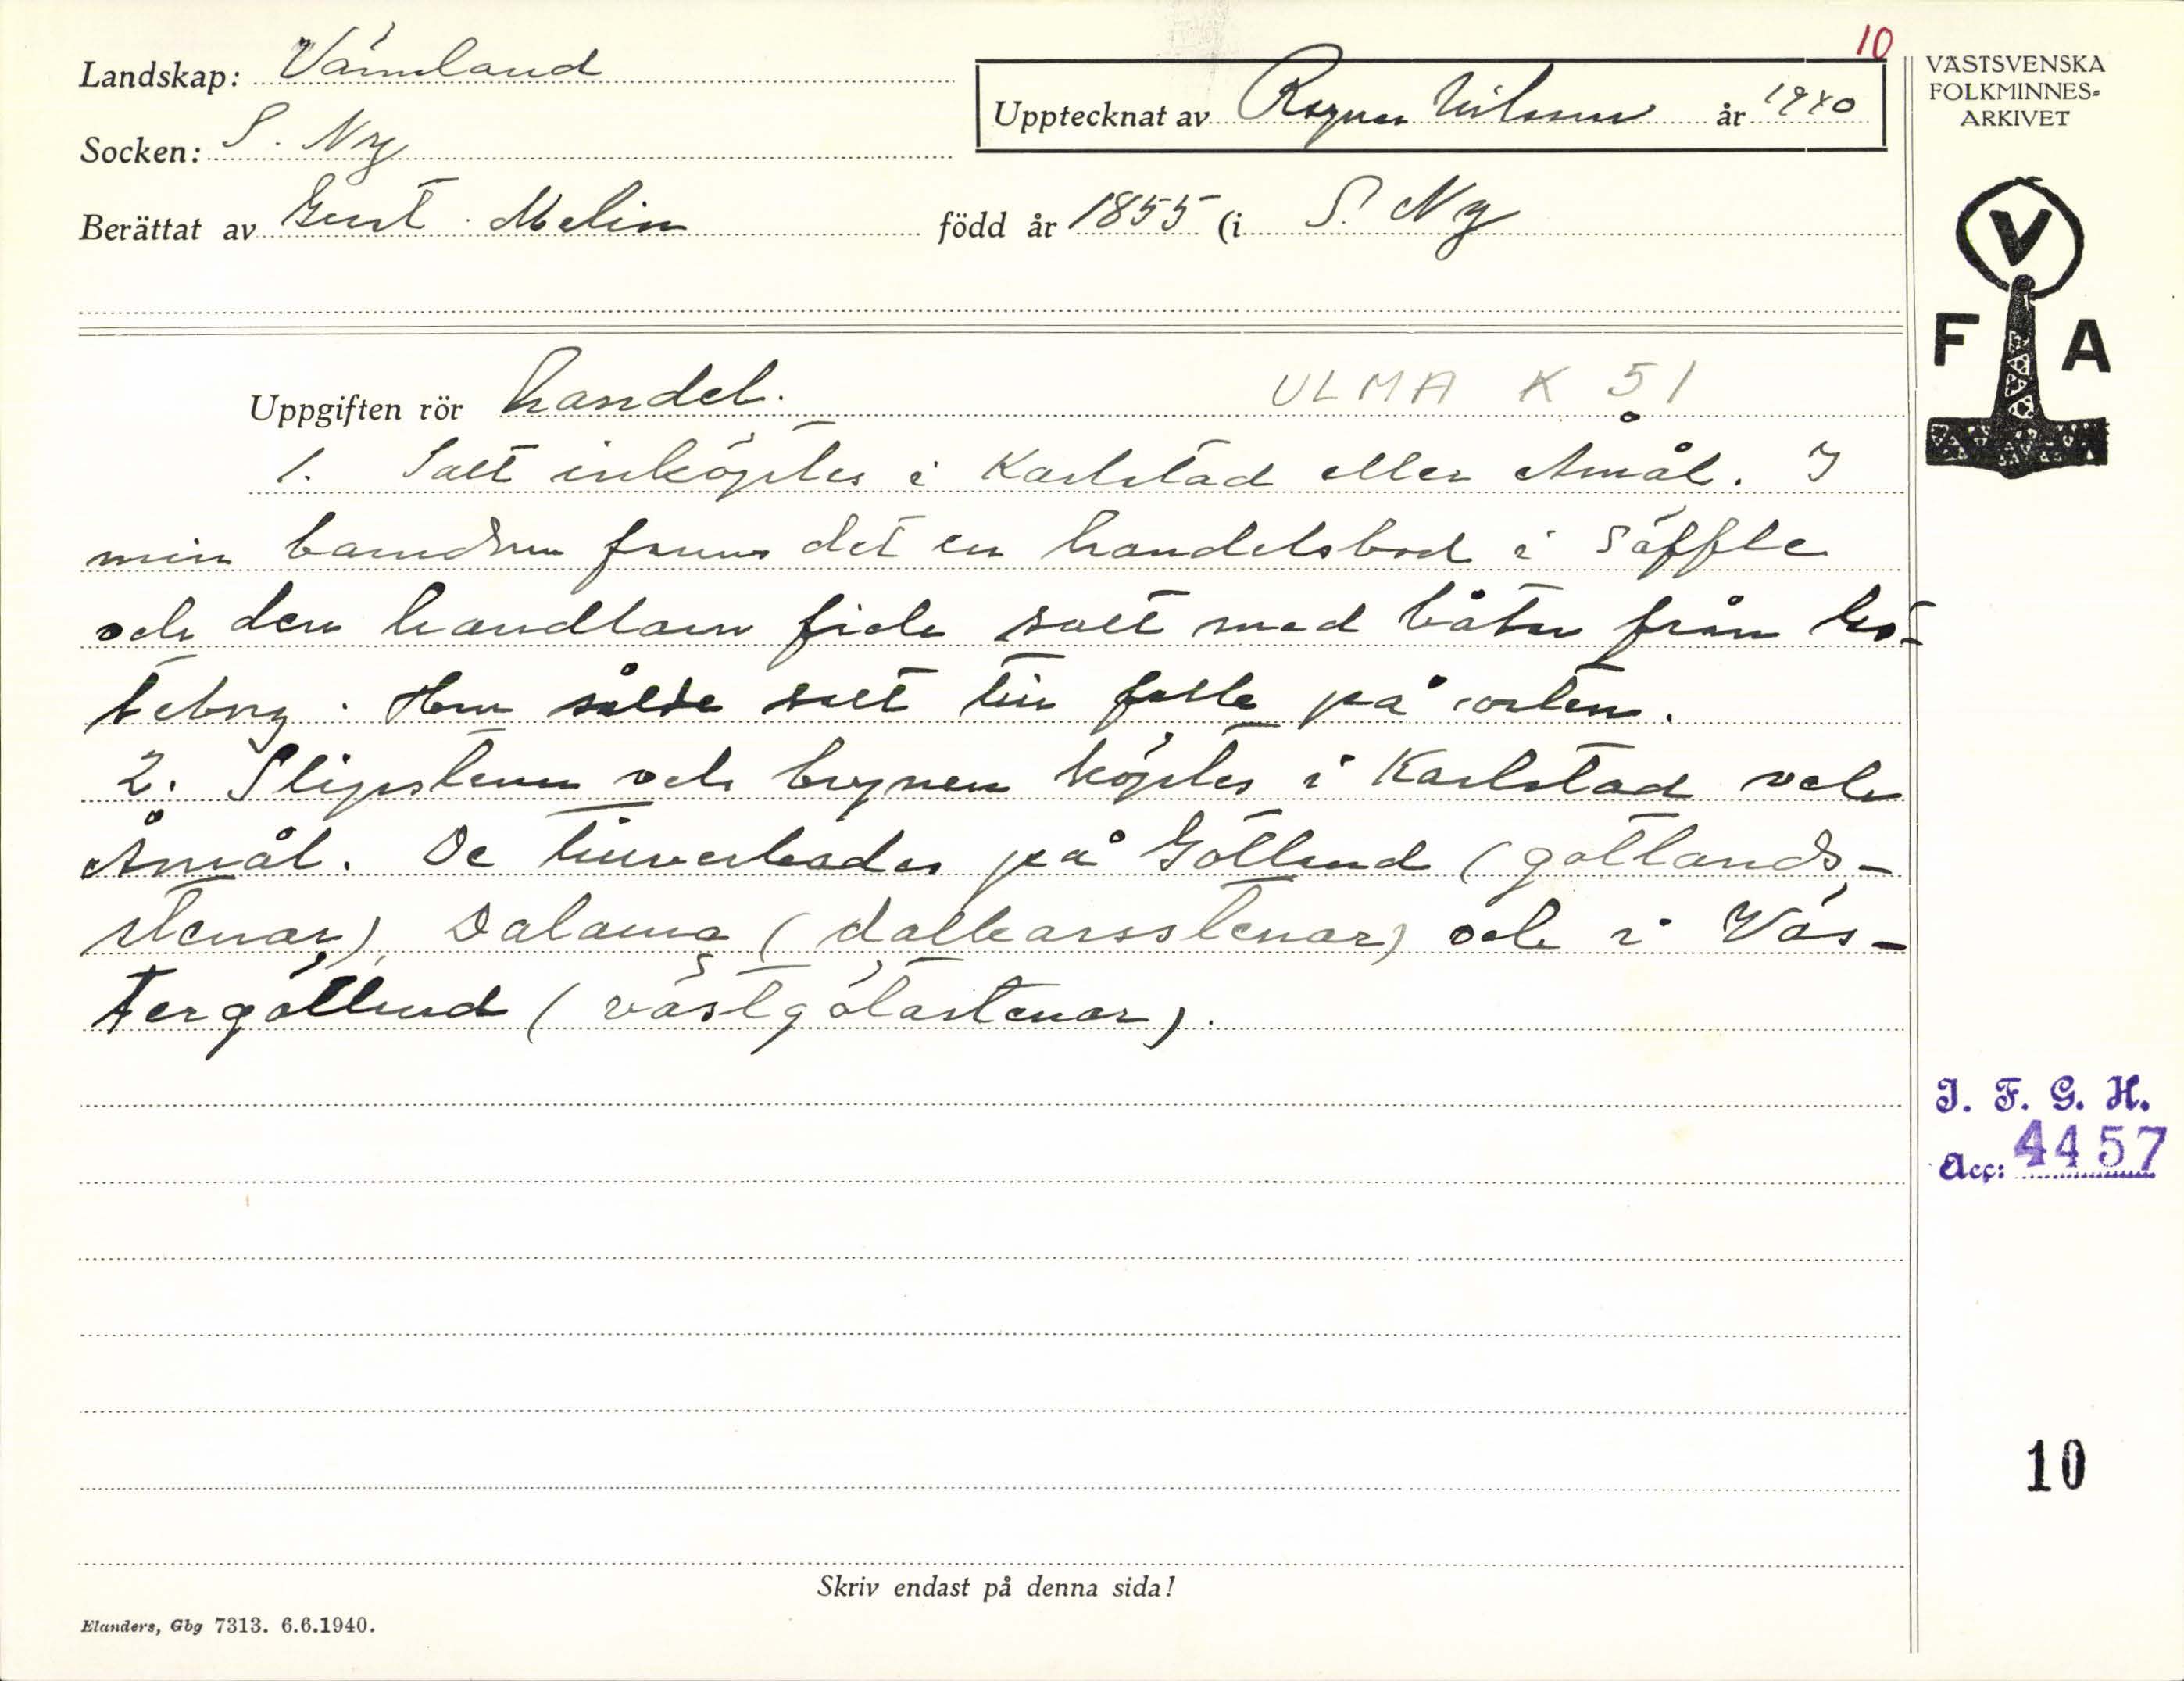 10
Landskap: Värmland
Upptecknat av Ragnar Nilsson år 1940
Socken: S. Ny
Berättat av Gust. Melin född år 1855 (i S. Ny
Uppgiften rör handel.
ULMA K 51
1. Salt inköptes i Karlstad eller Åmål. I
min barndom fanns det en handelsbod i Säffle
och den handlarn fick salt med båten från Gö-
teborg. Han sålde salt till folk på orten.
2. Slipstenar och brynen köptes i Karlstad och
Åmål. De tillverkades på Gotland (gotlands-
stenar), Dalarna (dalkarsstenar) och i Väs-
tergötland (västgötastenar).
Skriv endast på denna sida!
Elanders, Gbg 7313. 6.6.1940.
VÄSTSVENSKA
FOLKMINNES-
ARKIVET
V
F A
I. F. G. H.
Acc: 4457
10